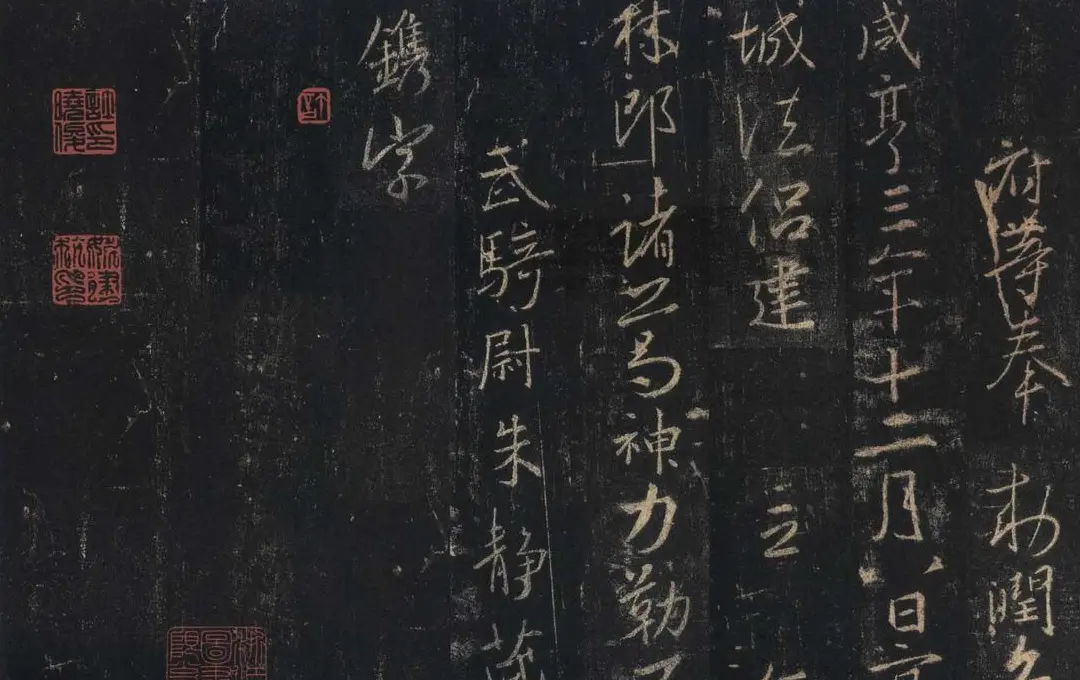 府等奉 敕潤色
咸亨三年十二月八日京
城法侶建 立
林郎諸葛神力勒石
武騎尉朱靜藏
鐫字
許